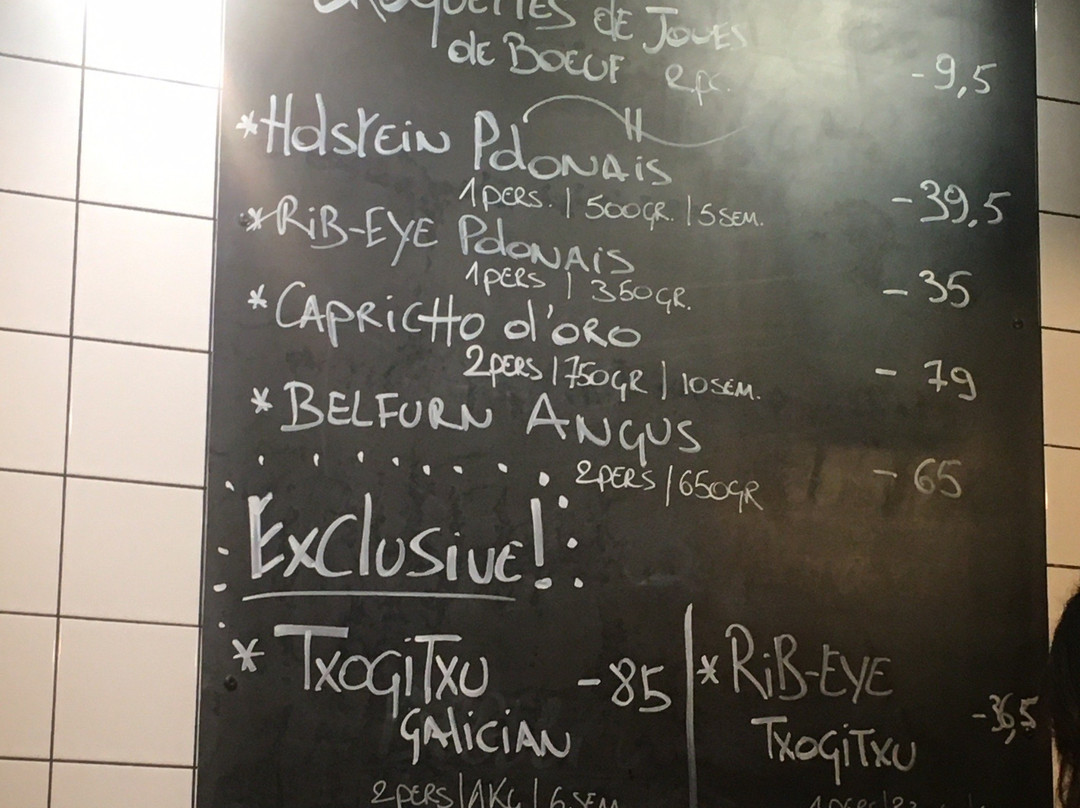 CROQUETTES DE JOUES
de BOEUF 2pc. -9,5
*Holstein Polonais
1PERS. | 500GR. | 5SEM. -39,5
*RiB-EYE Polonais
1PERS | 350GR. -35
*CAPRICHO d'ORO
2PERS | 750GR | 10SEM. -79
*BELFURN ANGUS
2PERS | 650GR -65
EXCLUSIVE!
* TXOGITXU -85
GALICIAN
2PERS | 1KG | 6SEM
*RiB-EYE
TXOGITXU -36,5
1PERS |